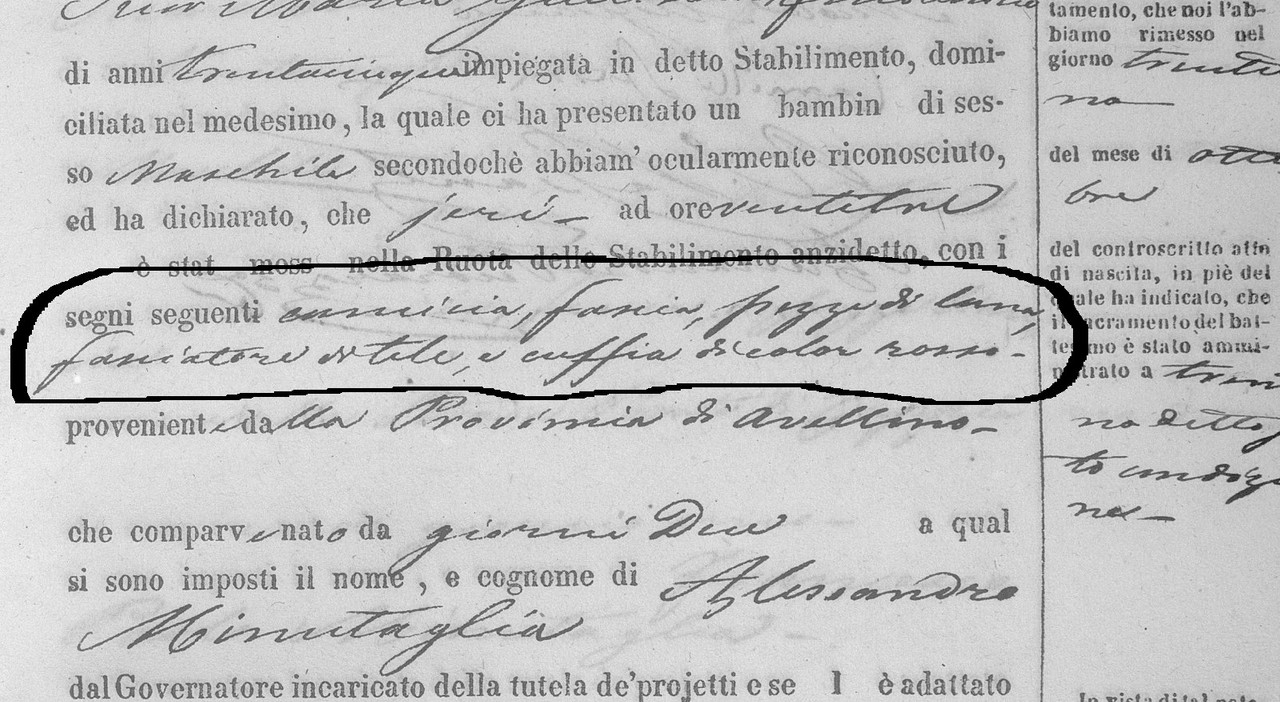 di anni trentacinque impiegata in detto Stabilimento, domi-
ciliata nel medesimo, la quale ci ha presentato un bambin di ses-
so Maschile secondochè abbiam' ocularmente riconosciuto,
ed ha dichiarato, che jeri - ad ore ventitre
è stat mess nella Ruota dello Stabilimento anzidetto, con i
segni seguenti camicia, fascia, pezze di lana,
fasciatore di tele, e cuffia di color rosso -
provenient e dalla Provincia di Avellino -
che comparve nato da giorni Due a qual
si sono imposti il nome, e cognome di Alessandro
Minutaglia
dal Governatore incaricato della tutela de' projetti e se l è adattato
tamento, che noi l'ab-
biamo rimesso nel
giorno trentu
no
del mese di otto
bre
del controscritto atto
di nascita, in piè del
quale ha indicato, che
il sacramento del bat-
tesimo è stato ammi-
nistrato a trent
no detto
In vista di tal nota